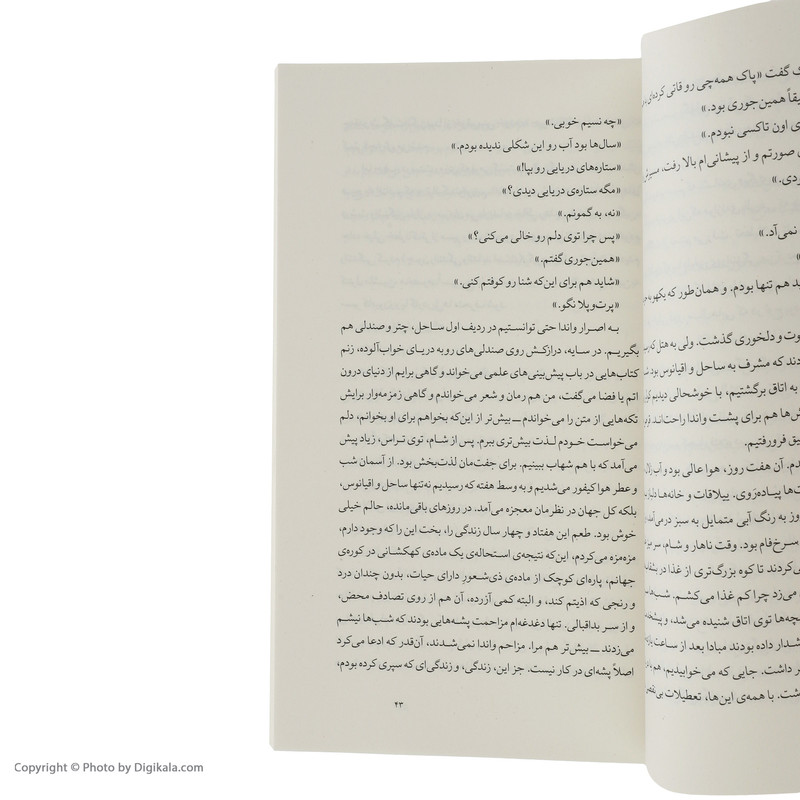 «چه نسیم خوبی.»
«سال‌ها بود آب رو این شکلی ندیده بودم.»
«ستاره‌های دریایی رو بپا!»
«مگه ستاره‌ی دریایی دیدی؟»
«نه، به گمونم.»
«پس چرا توی دلم رو خالی می‌کنی؟»
«همین‌جوری گفتم.»
«شاید هم برای این‌که شنا رو کوفتم کنی.»
«پرت‌وپلا نگو.»
به اصرار واندا حتی توانستیم در ردیف اول ساحل، چتر و صندلی هم
بگیریم. در سایه، درازکش روی صندلی‌های رو به دریای خواب‌آلوده، زنم
کتاب‌هایی در باب پیش‌بینی‌های علمی می‌خواند و گاهی برایم از دنیای درون
اتم یا فضا می‌گفت، من هم رمان و شعر می‌خواندم و گاهی زمزمه‌وار برایش
تکه‌هایی از متن را می‌خواندم ــ بیش‌تر از این‌که بخواهم برای او بخوانم، دلم
می‌خواست خودم لذت بیش‌تری ببرم. پس از شام، توی تراس، زیاد پیش
می‌آمد که با هم شهاب ببینیم. برای جفت‌مان لذت‌بخش بود. از آسمان شب
و عطر هوا کیفور می‌شدیم و به وسط هفته که رسیدیم نه‌تنها ساحل و اقیانوس،
بلکه کل جهان در نظرمان معجزه می‌آمد. در روزهای باقی‌مانده، حالم خیلی
خوش بود. طعم این هفتاد و چهار سال زندگی را، بخت این را که وجود دارم،
مزه‌مزه می‌کردم، این‌که نتیجه‌ی استحاله‌ی یک ماده‌ی کهکشانی در کوره‌ی
جهانم، پاره‌ای کوچک از ماده‌ی ذی‌شعورِ دارای حیات، بدون چندان درد
و رنجی که اذیتم کند، و البته کمی آزرده، آن هم از روی تصادف محض،
و از سر بداقبالی. تنها دغدغه‌ام مزاحمت پشه‌هایی بودند که شب‌ها نیشم
می‌زدند ــ بیش‌تر هم مرا. مزاحم واندا نمی‌شدند، آن‌قدر که ادعا می‌کرد
اصلاً پشه‌ای در کار نیست. جز این، زندگی، و زندگی‌ای که سپری کرده بودم،
۲۳
گفت «پاک همه‌چی رو قاتی کرده‌ای
همین‌جوری بود.»
اون تاکسی نبودم.»
صورتم و از پیشانی‌ام بالا رفت،
نمی‌آد.»
هم تنها بودم. و همان‌طور که
و دلخوری گذشت. ولی به هتل که
که مشرف به ساحل و اقیانوس بود
به اتاق برگشتیم، با خوشحالی دیدیم
هم برای پشت واندا راحت‌اند
فرورفتیم.
آن هفت روز، هوا عالی بود و آب
پیاده‌رَوی. ییلاقات و خانه‌ها
به رنگ آبی متمایل به سبز درمی‌آمد
سرخ‌فام بود. وقت ناهار و شام، سر میز
تا کوه بزرگ‌تری از غذا در
می‌زد چرا کم غذا می‌کشم. شب‌ها
توی اتاق شنیده می‌شد، و
داده بودند مبادا بعد از ساعت
داشت. جایی که می‌خوابیدیم، هم
با همه‌ی این‌ها، تعطیلات
Copyright © Photo by Digikala.com